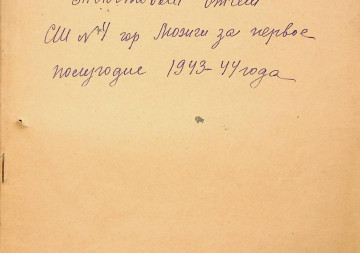 Текстовый отчет
СШ №4 гор Можги за первое
полугодие 1943-44 года